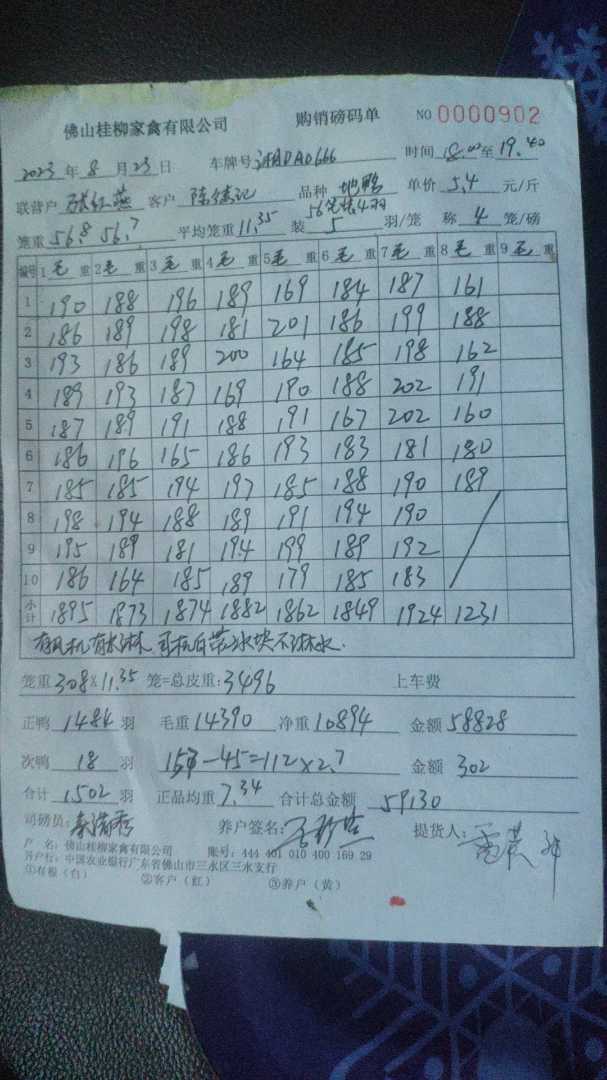 佛山桂柳家禽有限公司 购销磅码单 NO 0000902
2023 年 8 月 23 日 车牌号 AD0666 时间 18.00 至 19.40
联营户 张红燕 客户 陈 记 品种 地鸭 单价 5.4 元/斤
笼重 56.8 56.7 平均笼重 11.35 装 5 羽/笼 称 4 笼/磅
56笼 4羽
编号 1毛重 2毛重 3毛重 4毛重 5毛重 6毛重 7毛重 8毛重 9毛重
1 190 188 196 189 169 184 187 161
2 186 189 198 181 201 186 199 188
3 193 186 189 200 164 185 198 162
4 189 193 187 169 190 188 202 191
5 187 189 191 188 191 167 202 160
6 186 196 165 186 193 183 181 180
7 185 185 194 197 185 188 190 189
8 198 194 188 189 191 194 190
9 195 189 181 194 199 189 192
10 186 164 185 189 179 185 183
小计 1895 1873 1874 1882 1862 1849 1924 1231
有风机有水淋 司机自带冰块不淋水.
笼重 308 x 11.35 笼=总皮重: 3496 上车费
正鸭 1484 羽 毛重 14390 净重 10894 金额 58828
次鸭 18 羽 157-45=112×2.7 金额 302
合计 1502 羽 正品均重 7.34 合计总金额 59130
司磅员: 养户签名: 提货人:
户 名: 佛山桂柳家禽有限公司 账号: 444 401 010 400 169 29
开户行: 中国农业银行广东省佛山市三水区三水支行
①存根(白) ②客户(红) ③养户(黄)